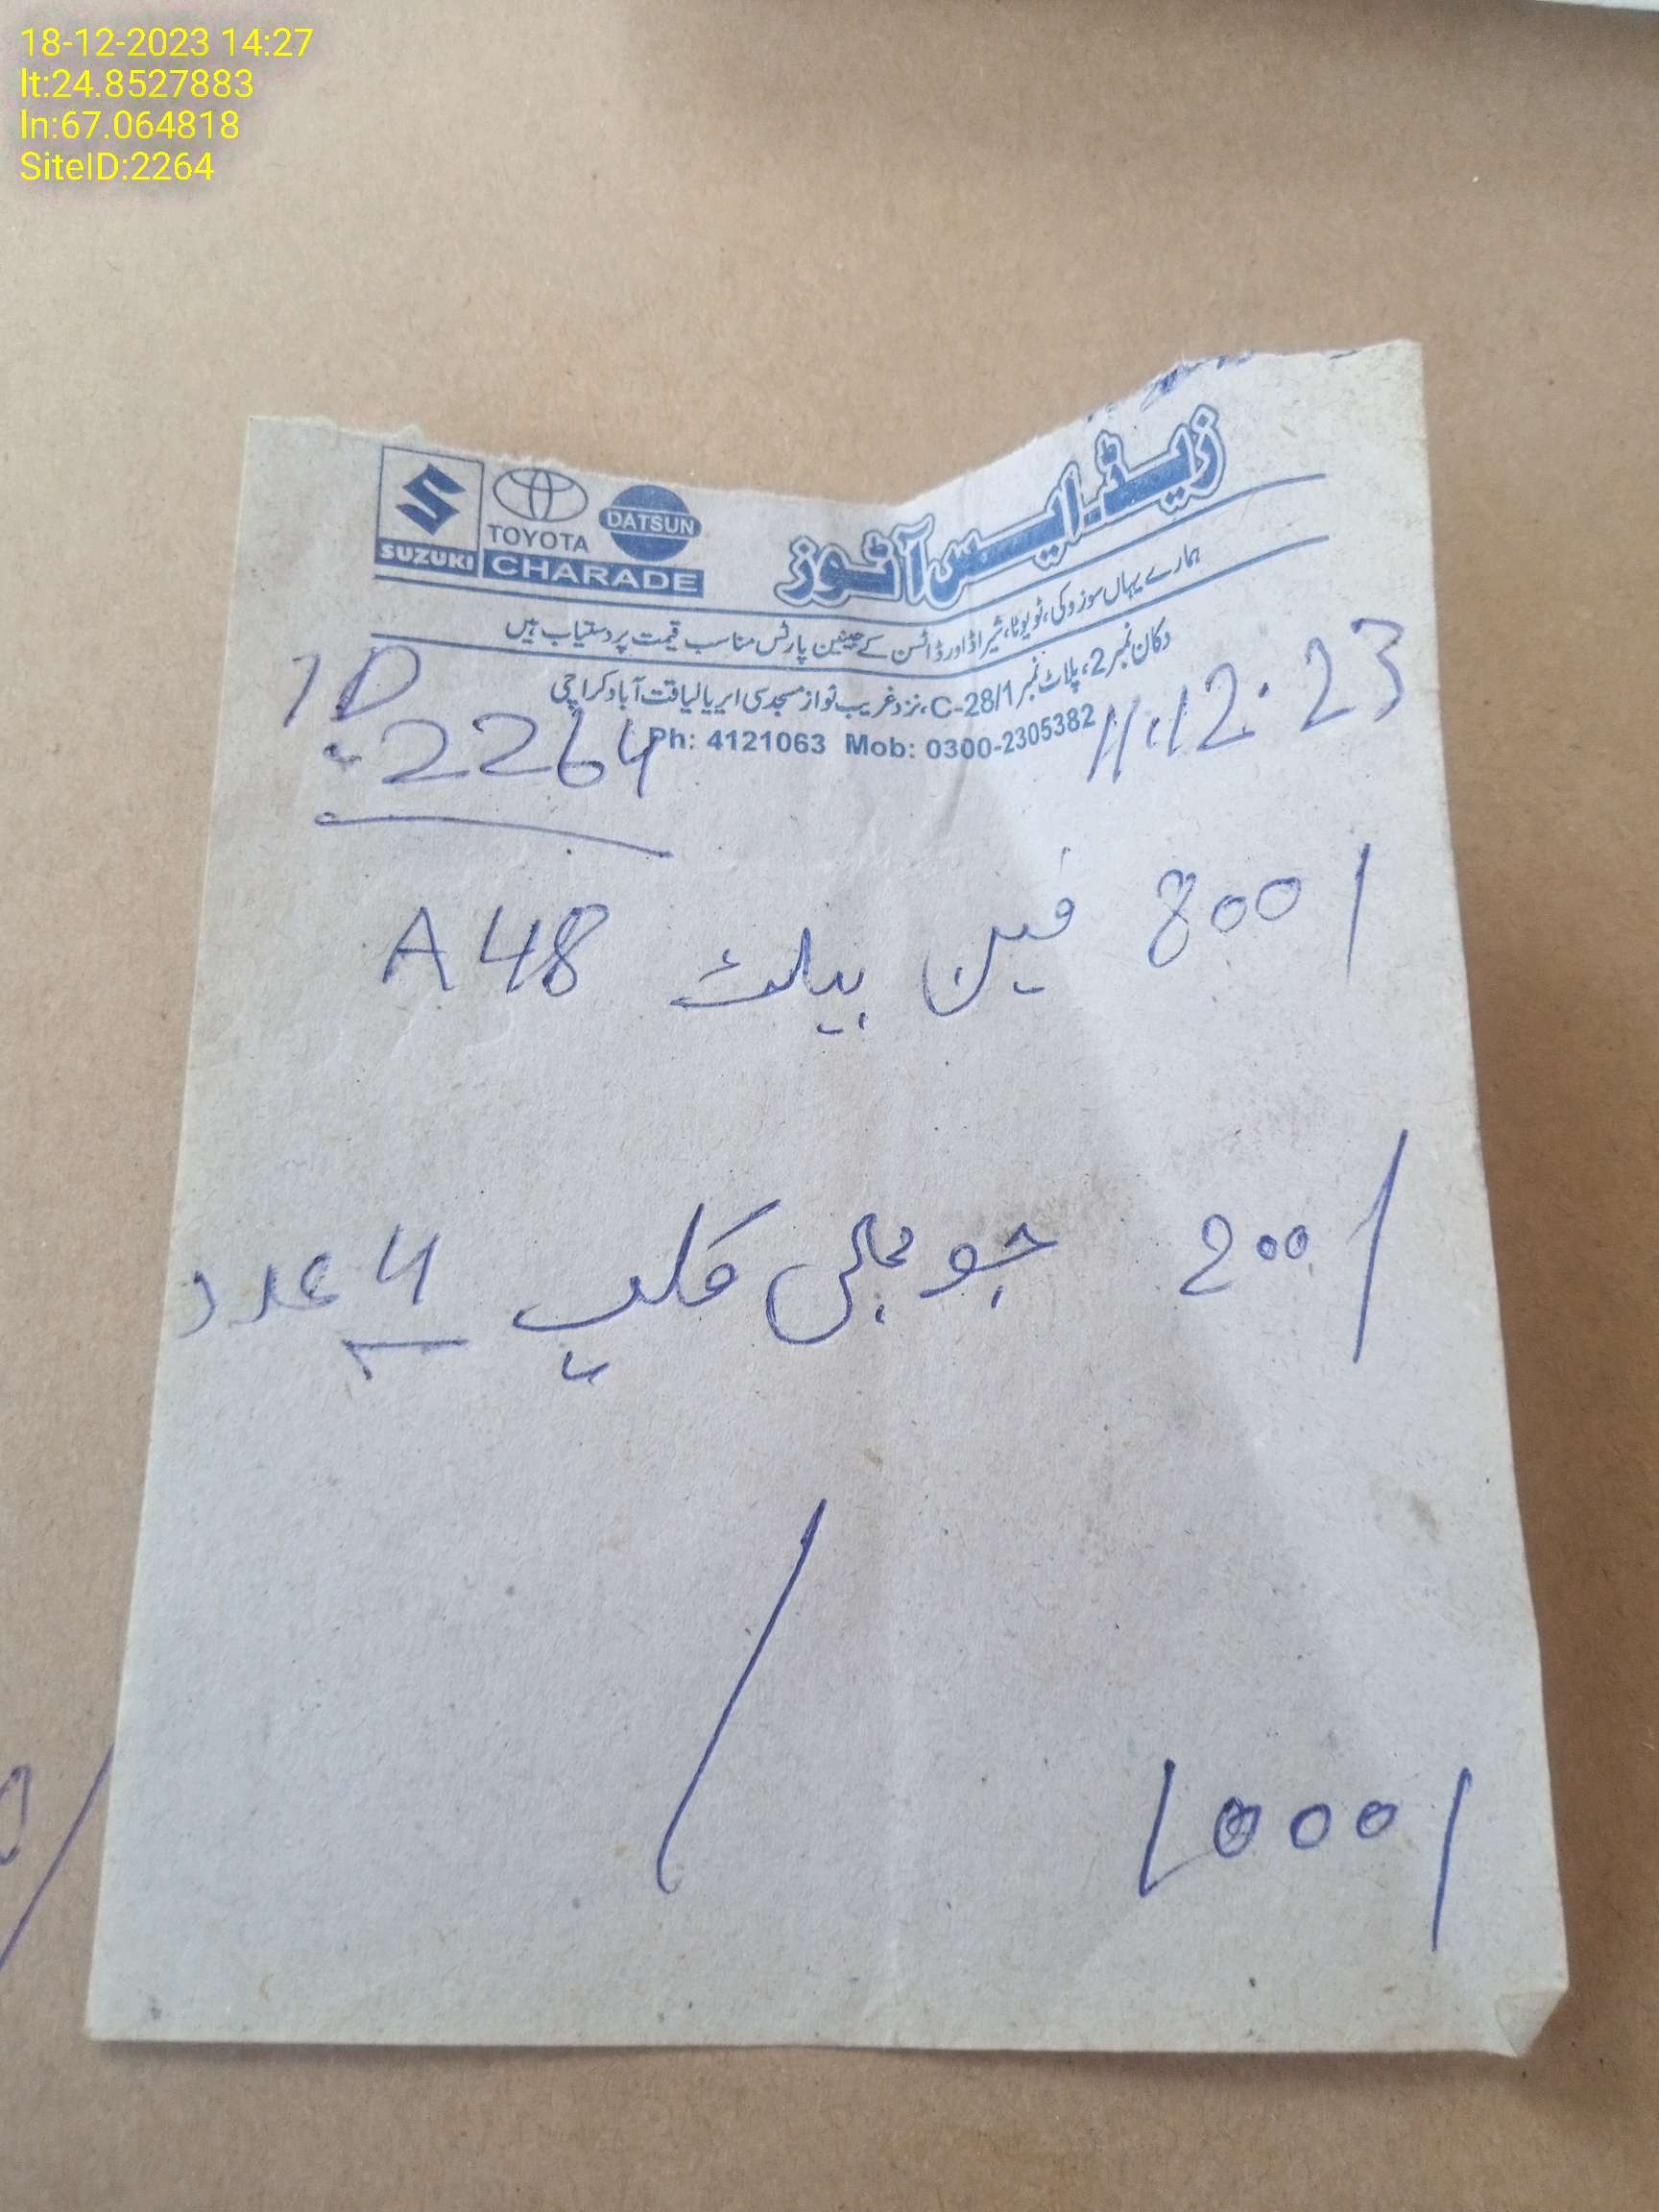 18-12-2023 14:27
lt:24.8527883
ln:67.064818
SiteID:2264
زیڈ ایس آٹوز
SUZUKI TOYOTA DATSUN CHARADE
ہمارے یہاں سوزوکی، ٹویوٹا، شیراڈ اور ڈاٹسن کے جینین پارٹس مناسب قیمت پر دستیاب ہیں
دکان نمبر 2، پلاٹ نمبر C-28/1، نزد غریب نواز مسجد سی ایریا لیاقت آباد کراچی
Ph: 4121063 Mob: 0300-2305382
ID 11.12.23
2264
800/ فین بیلٹ A48
200/ کلپ 4 عدد
1000/